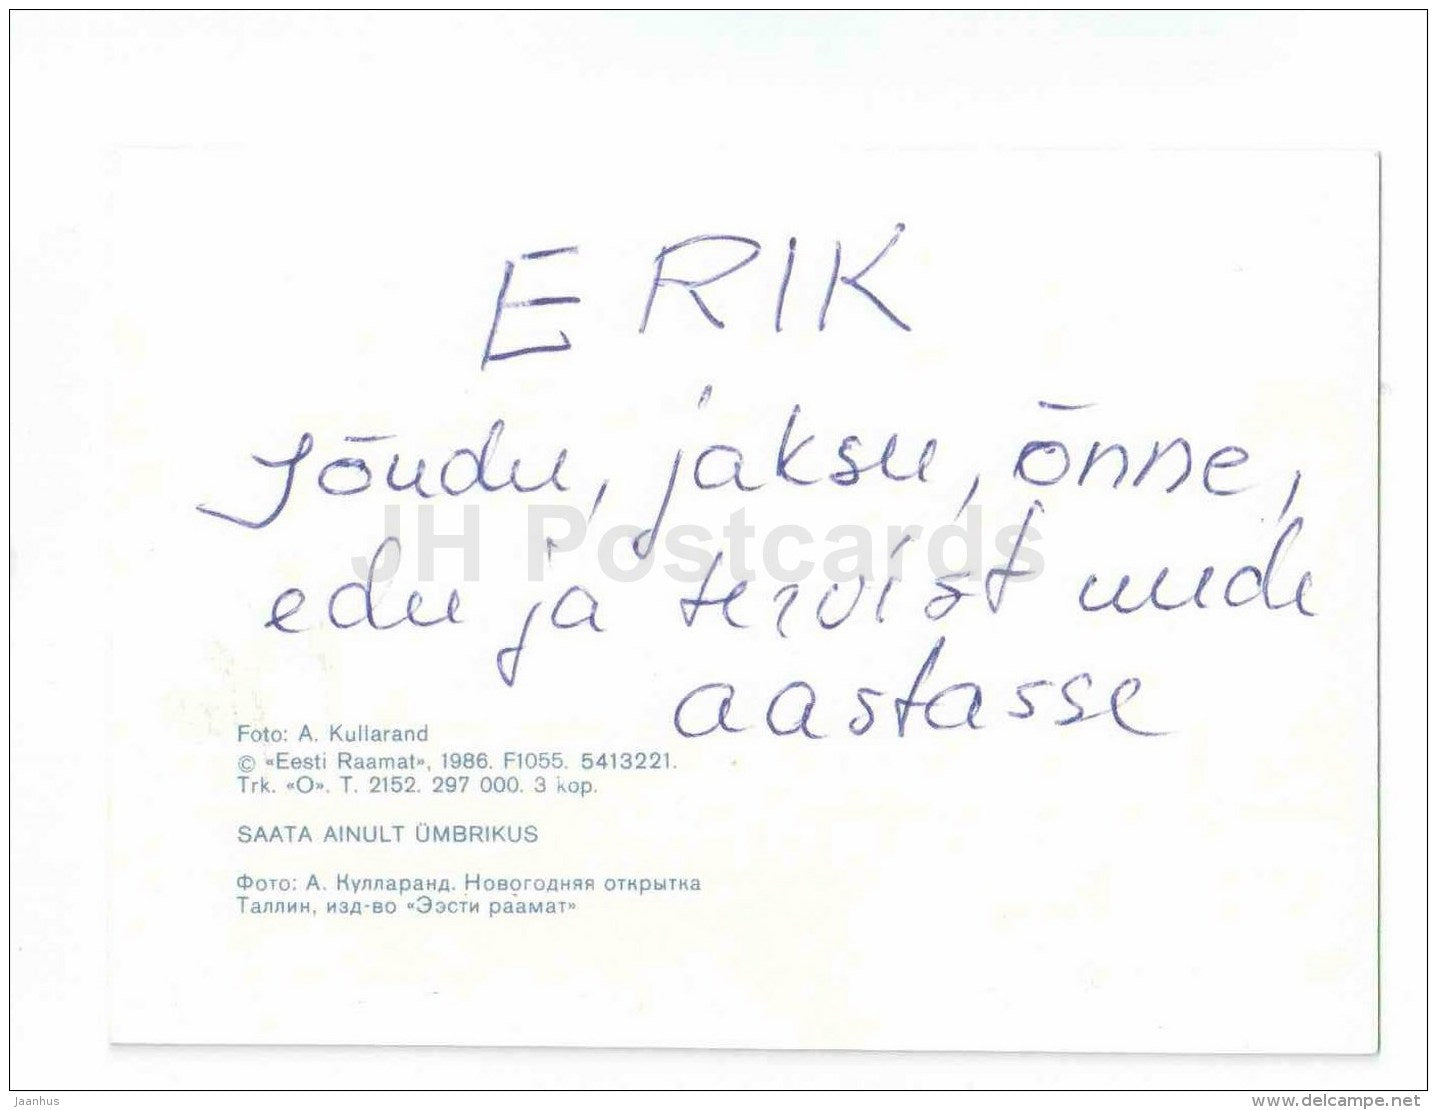 ERIK
Jõudu, jaksu, õnne,
edu ja tervist uude
aastasse
JH Postcards
Foto: A. Kullarand
© «Eesti Raamat», 1986. F1055. 5413221.
Trk. «O». T. 2152. 297 000. 3 kop.
SAATA AINULT ÜMBRIKUS
Фото: А. Кулларанд. Новогодняя открытка
Таллин, изд-во «Ээсти раамат»
Jaanhus
www.delcampe.net